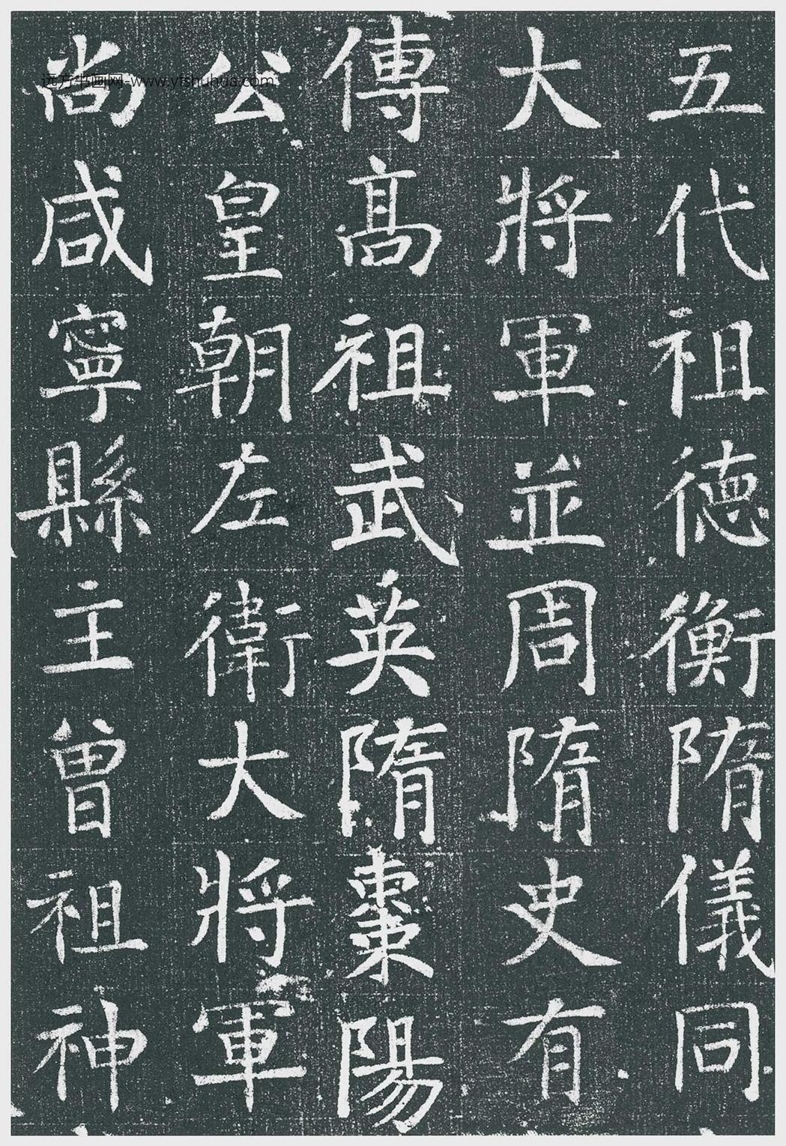 五代祖德衡隋儀同
大將軍並周隋史有
傳高祖武英隋棗陽
公皇朝左衛大將軍
尚咸寧縣主曾祖神
远方书画网-www.yfshuhua.com